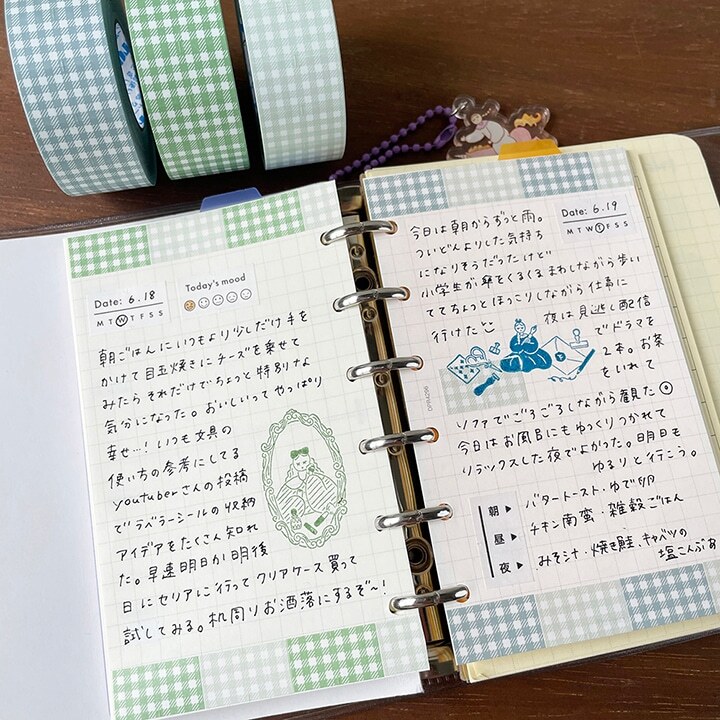 Date: 6.18
M T W T F S S
Today's mood
朝ごはんにいつもより少しだけ手を
かけて目玉焼きにチーズを乗せて
みたらそれだけでちょっと特別な
気分になった。おいしいってやっぱり
幸せ…！いつも文具の
使い方の参考にしてる
youtuberさんの投稿
でラベラーシールの収納
アイデアをたくさん知れ
た。早速明日か明後
日にセリアに行ってクリアケース買って
試してみる。机周りお洒落にするぞ〜！
Date: 6.19
M T W T F S S
今日は朝からずっと雨。
ついどんよりした気持ち
になりそうだったけど
小学生が傘をくるくるまわしながら歩い
ててちょっとほっこりしながら仕事に
行けたよ
夜は見逃し配信
でドラマを
2本。お茶
をいれて
ソファでごろごろしながら観た
今日はお風呂にもゆっくりつかれて
リラックスした夜でよかった。明日も
ゆるりと行こう。
朝▶ バタートースト・ゆで卵
昼▶ チキン南蛮・雑穀ごはん
夜▶ みそ汁・焼き鮭、キャベツの
塩こんぶあ